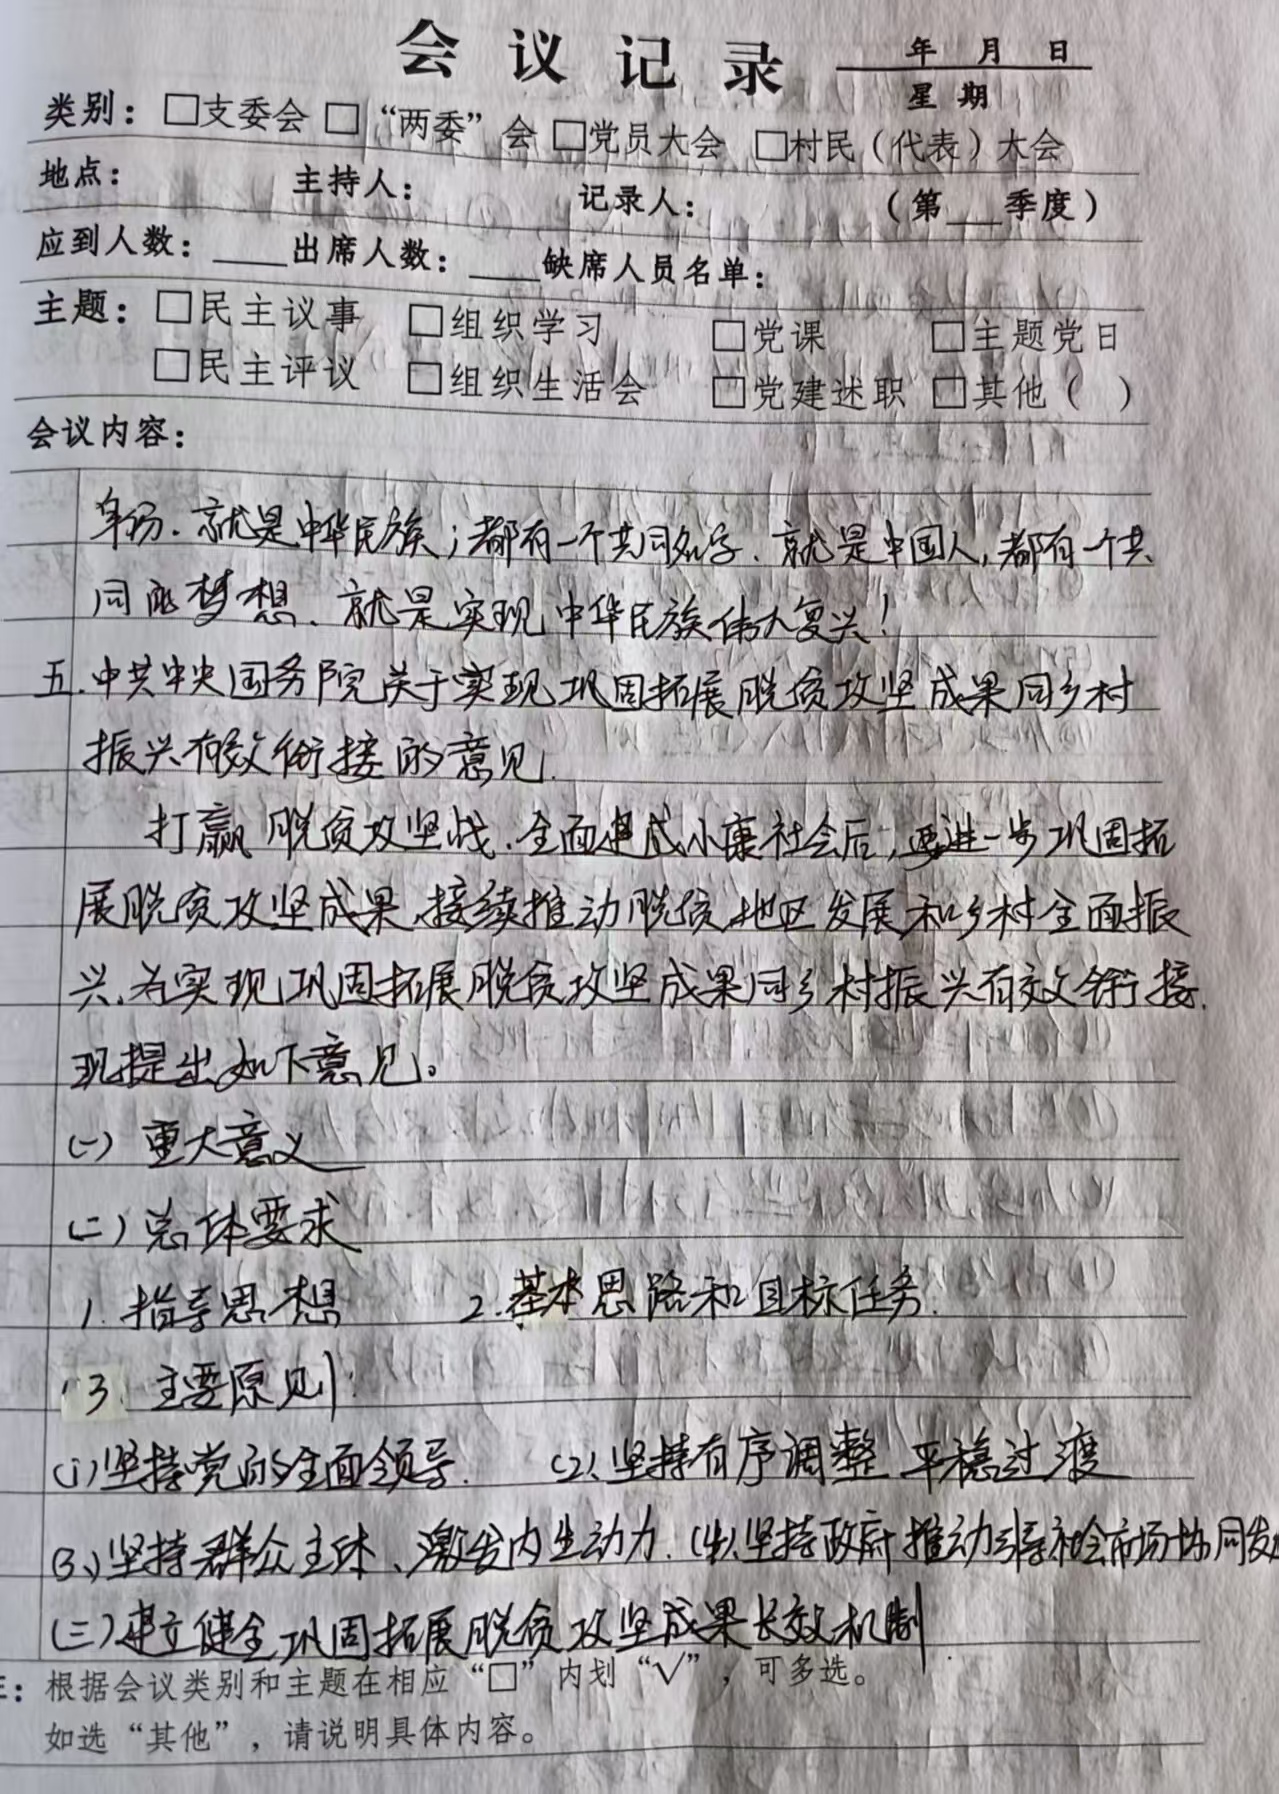 会议记录
年 月 日
星期
类别：□支委会 □“两委”会 □党员大会 □村民（代表）大会
地点： 主持人： 记录人： （第___季度）
应到人数：____出席人数：____缺席人员名单：
主题：□民主议事 □组织学习 □党课 □主题党日
□民主评议 □组织生活会 □党建述职 □其他（ ）
会议内容：
身份、就是中华民族；都有一个共同名字、就是中国人，都有一个共
同的梦想、就是实现中华民族伟大复兴！
五.中共中央国务院关于实现巩固拓展脱贫攻坚成果同乡村
振兴有效衔接的意见.
打赢脱贫攻坚战、全面建成小康社会后，要进一步巩固拓
展脱贫攻坚成果、接续推动脱贫地区发展和乡村全面振
兴、为实现巩固拓展脱贫攻坚成果同乡村振兴有效衔接、
现提出如下意见。
(一) 重大意义
(二) 总体要求
1. 指导思想 2.基本思路和目标任务.
3. 主要原则：
(1)坚持党的全面领导. (2)、坚持有序调整 平稳过渡
(3、)坚持群众主体、激发内生动力. (4)、坚持政府推动引导社会市场协同发
(三)建立健全巩固拓展脱贫攻坚成果长效机制.
：根据会议类别和主题在相应“□”内划“√”，可多选。
如选“其他”，请说明具体内容。